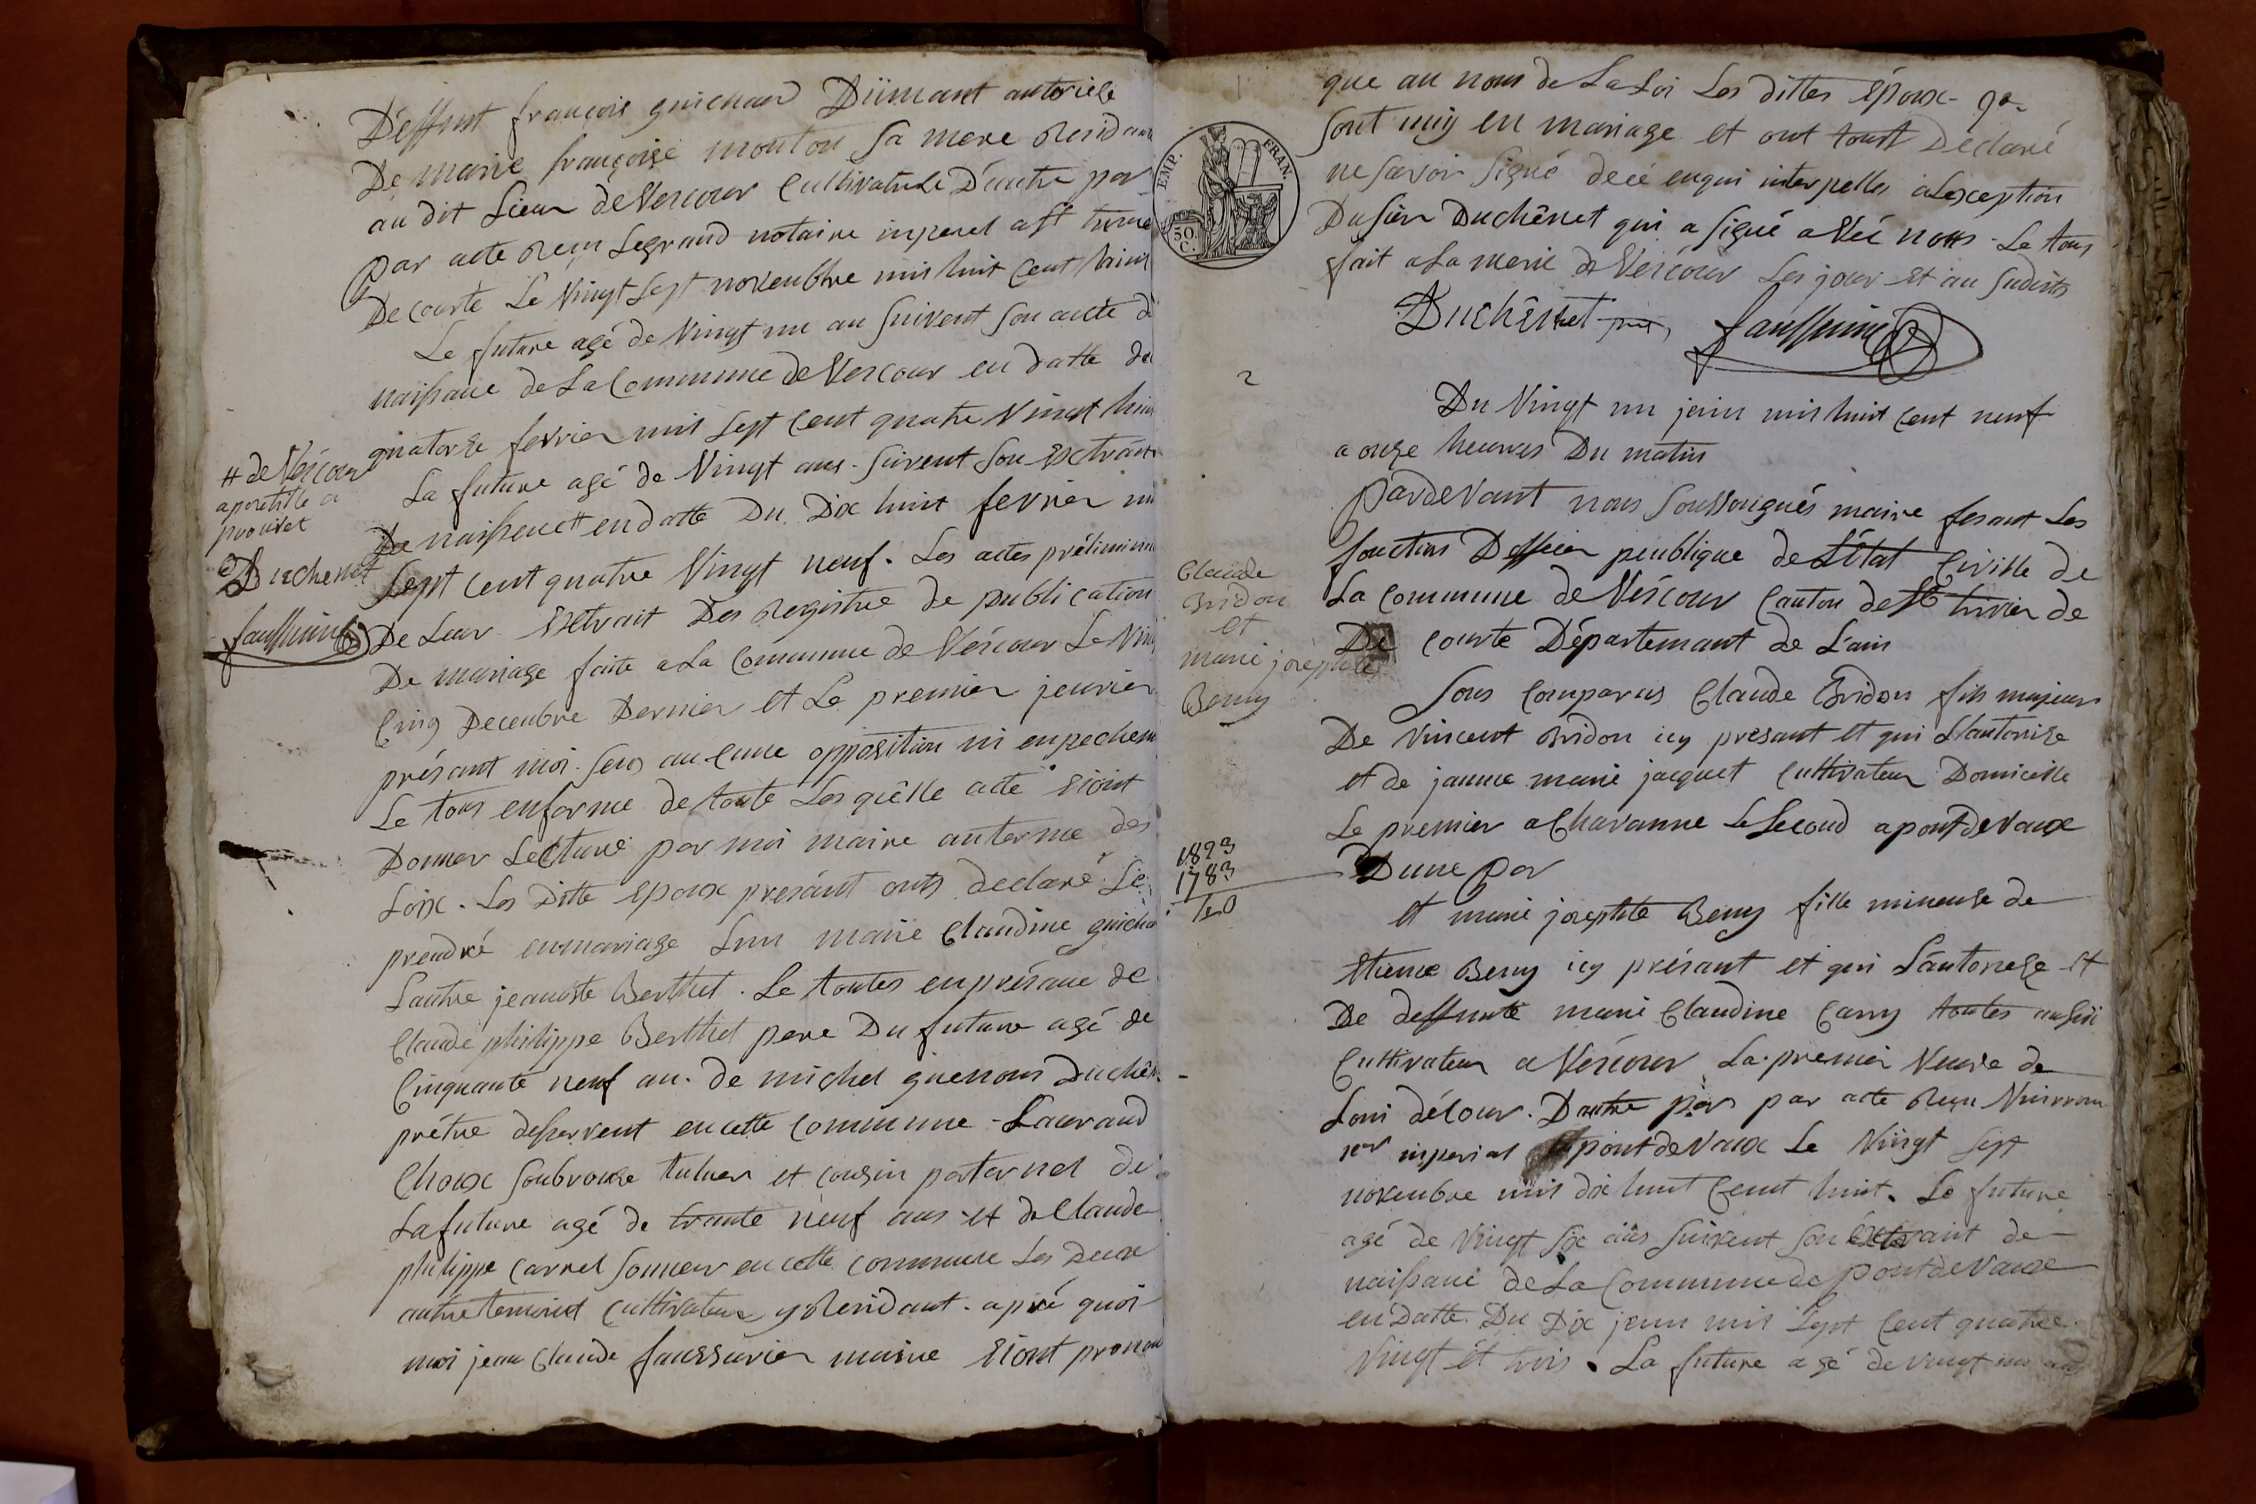 Deffunt françois guichard Düment autorisé
De marie françoise mouton Sa mere Residante
au dit Lieu de Vescour Cultivatrise D'autre par
par acte Reçu Legrand notaire inperel a St trivie
De courte Le Vingt Sept novembre mis huit Cent huit
Le future agé de Vingt un an Suivent Son acte d
naissance de La Commune de Vescour en datte du
quatorze fevrier mil Sept Cent quatre Vingt huit
# de Vescour
apoustille a
prouvet
Duchenet
faussurier
La future agé de Vingt ans. Suivent Son Extrait
De naissence # en datte Du Dix huit fevrier mil
Sept Cent quatre Vingt neuf. Les actes préliminaire
De Leur Extrait Des Registre de publication
De mariage faite a La Commune de Vescour Le Vingt
Cinq Decembre Dernier et Le premier jenvier
présant moi. Sens au cune opposition ni enpechem
Le tous en forme de toute Les quelle acte Eiont
Donner Lecture par moi maire au terme des
Loix. Les Ditte Epoux presant onts declaré Se
prendré en mariage Lun marie Claudine guichard
L'autre jeanoste Berthet. Le toutes en présance de
Claude philippe Berthet pere Du future agé de
Cinquante neuf an. de michel guenous Duchên
prêtre desservent en cette Commune - Laurand
Choux Soubrouse tuluer et cousin paternel de
La future agé de trante neuf ans et de Claude
philippe Carrel Sonneur en cette commune Les Deux
autre temoint Cultivateux y Residant. apré quoi
moi jean Claude faussurier maire Eiont pronon
que au nom de La Loi Les dittes époux
Sont uniy en mariage et ont toust Déclaré
ne savoir Signé de ce enqui interpelles a Lexception
Du Sieur Duchênet qui a Signé a Véc nous. Le tous
fait a La merie de Vescour Les jour et an Sudits
EMP. FRAN.
50. C.
Duchênet faussurier
2
Du Vingt un juin mis huit Cent neuf
a onze heures Du matin
pardevant nous Soussougnés maire fesant Les
fonction Dofficier peublique de L'état Civille de
La Commune de Vescour Canton de St trivier de
De Courte Département de L'ain
Claude
Bridon
et
marie josephte
Beuy
Sons Comparus Claude Bridon fils majeurs
De Vincent Bridon icy presant et qui Llautorise
et de jeanne marie jacquet Cultivateur Domicille
Le premier a Chavanne Le Second a pont de Vaux
1823
1783
D'une par
et marie josephte Beuy fille mineuse de
Etienne Beuy icy présant et qui L'autorise et
De deffunte marie Claudine Carry toutes aussii
Cultivateur a Vescour La premier Veuve de
Loui délour. D'autre par par acte Reçu
inperial a pont de Vaux Le Vingt Sept
novembre mis dix huit Cent huit. Le future
agé de Vingt Six ans Suivent Son Extrait de
naissance de La Commune de pont de Vaux
en Datte Du Dix juin mil Sept Cent quatre
Vingt et trois. La future agé de Vingt un an